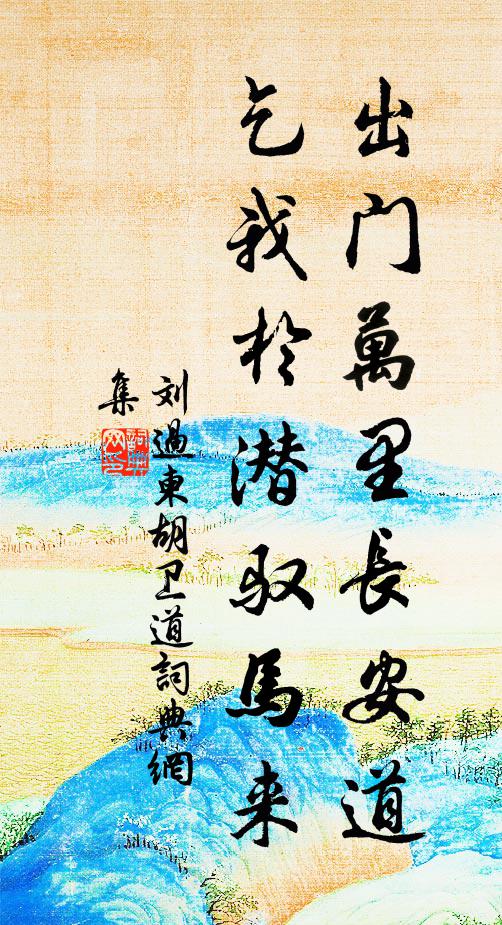 出门萬里長安道
乞我於潜驭馬来
刘過東胡卫道詞典網
集